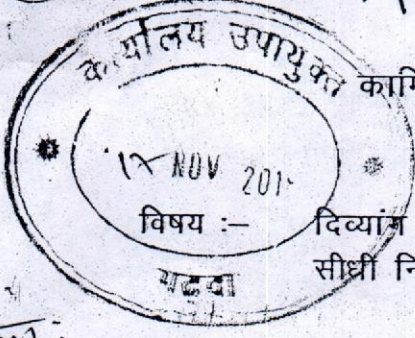 कार्यालय उपायुक्त
कार्मि
NOV 201
विषय :– दिव्यांग
सीधी नि